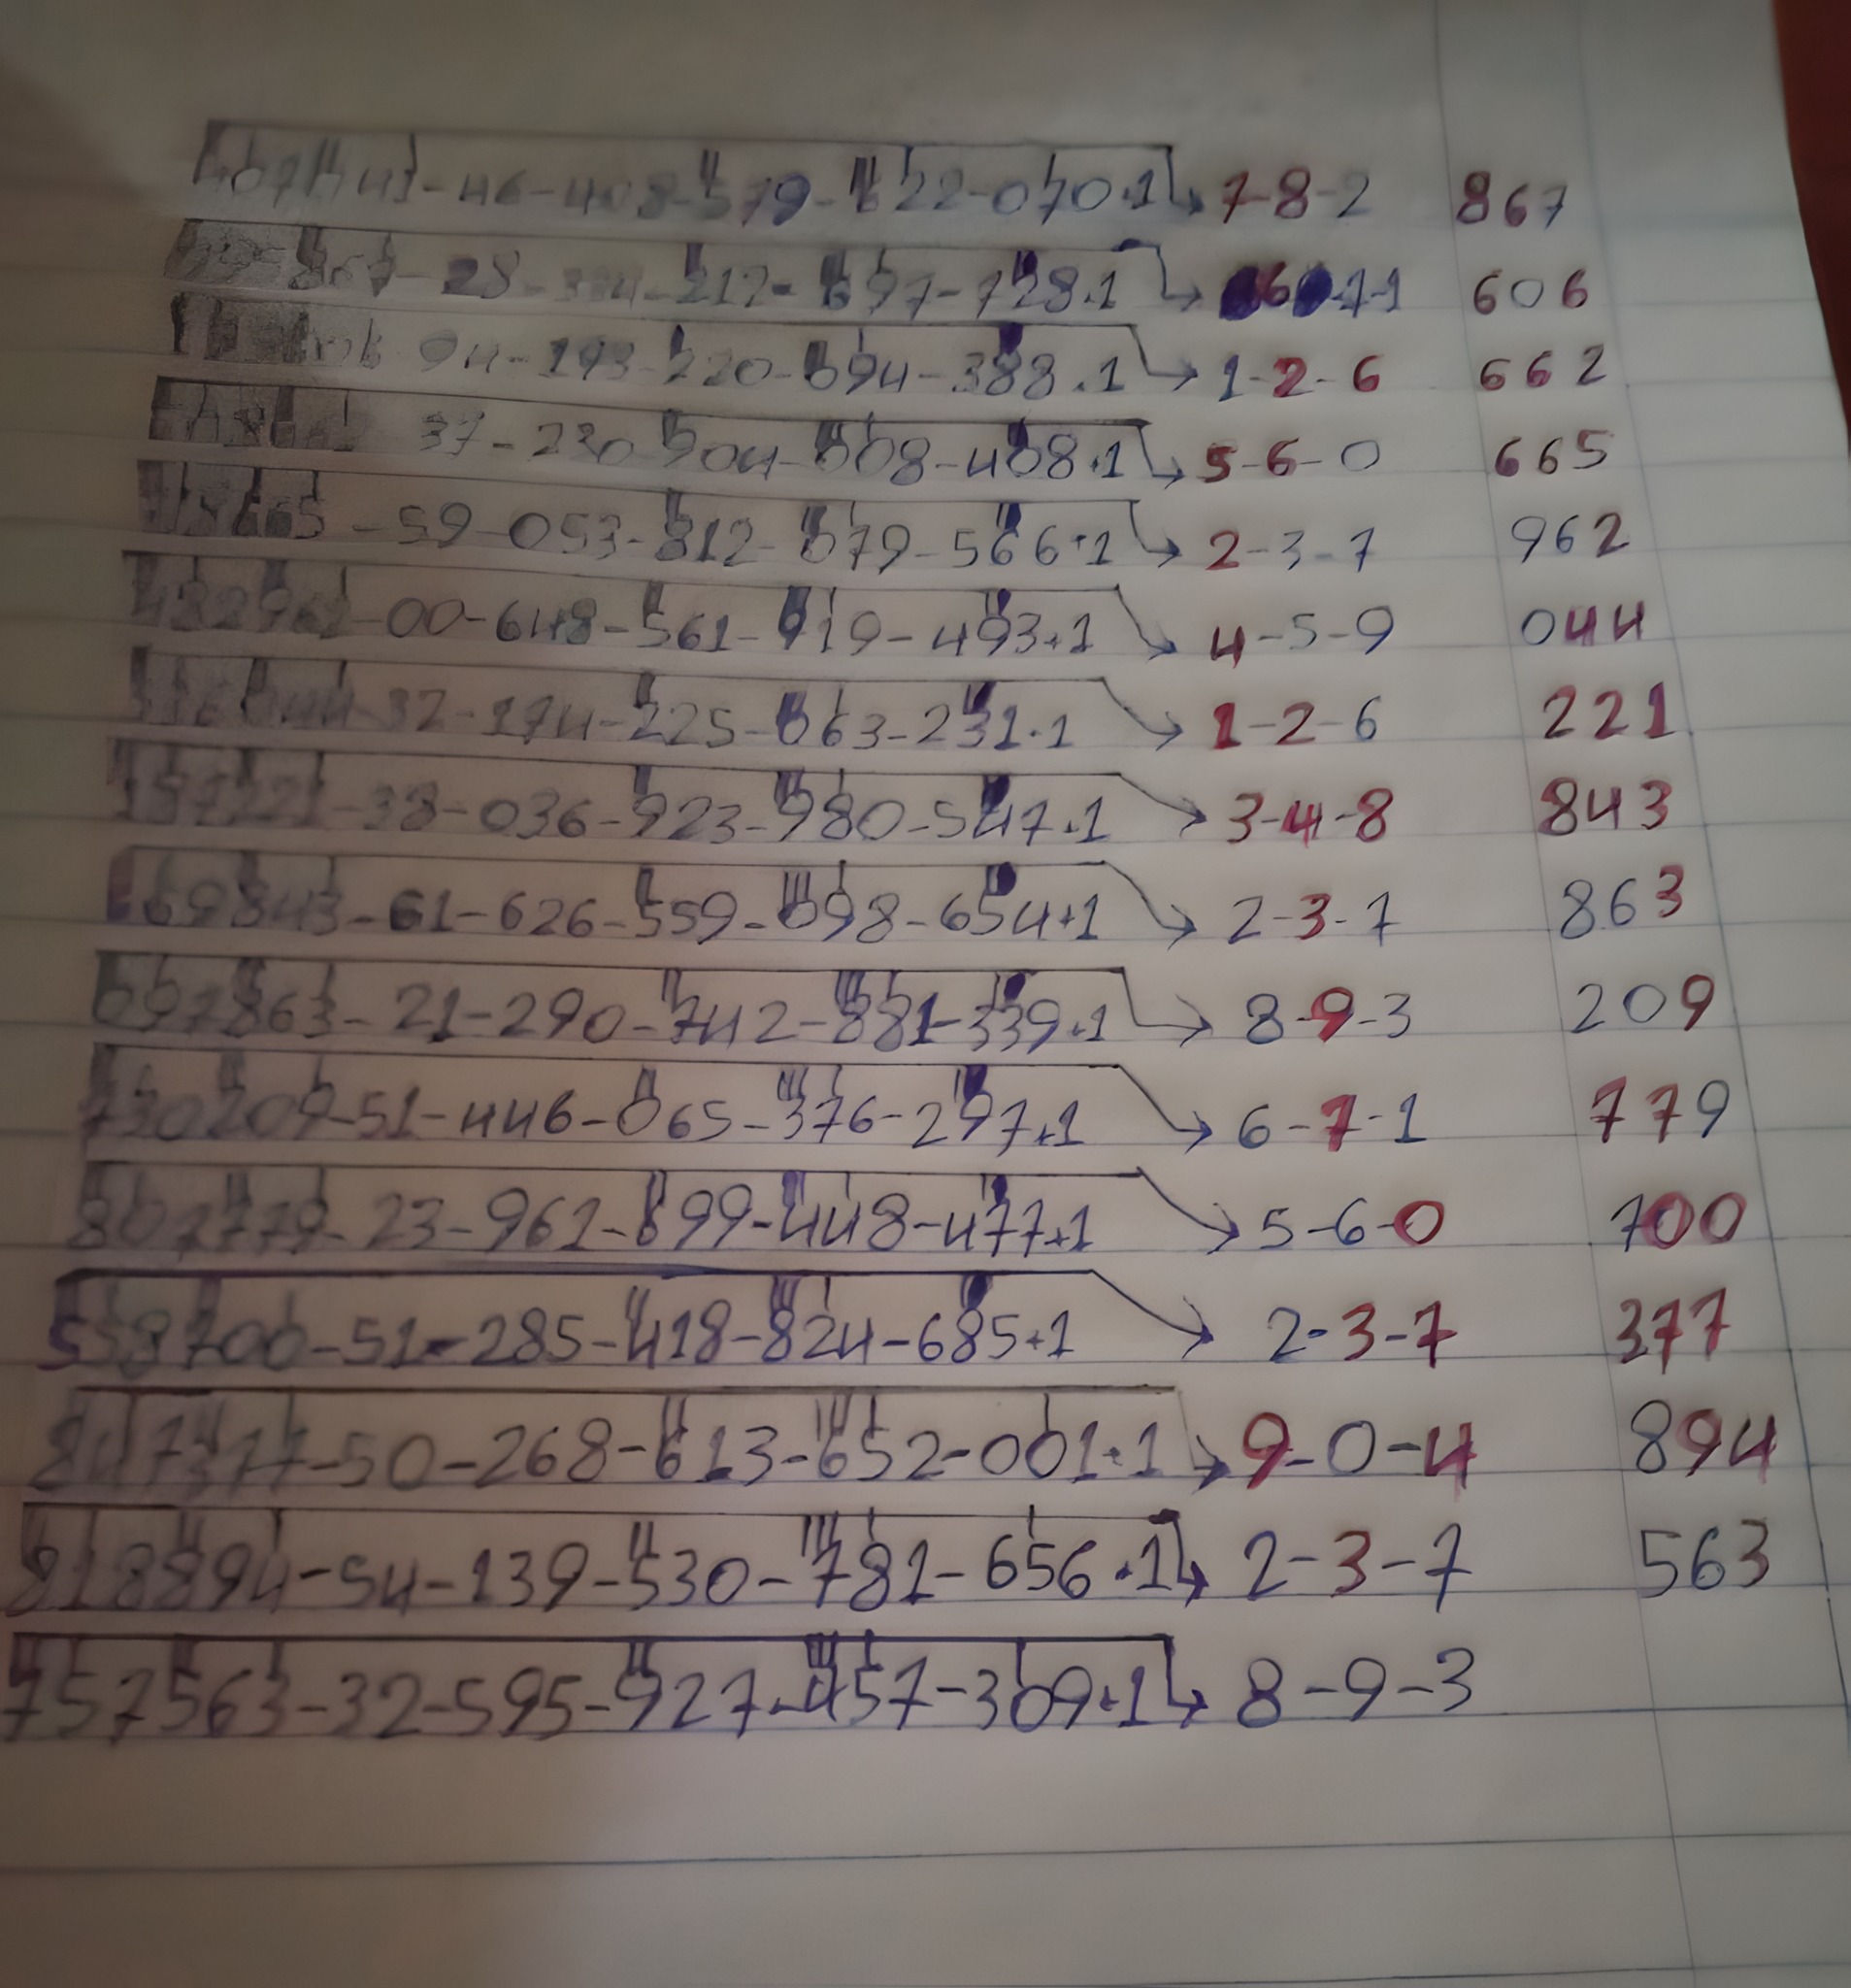 43-46-408-579-622-070+1 7-8-2 867
867-28-212-697-728.1 6 7-1 606
94-193-220-694-388.1 1-2-6 662
37-230 904-608-408+1 5-6-0 665
665-59-053-812-679-566+1 2-3-7 962
432962-00-648-561-919-493+1 4-5-9 044
044-32-174-225-663-231.1 1-2-6 221
221-38-036-923-980-547.1 3-4-8 843
669843-61-626-559-698-654+1 2-3-7 863
697863-21-290-742-881-339+1 8-9-3 209
730209-51-446-065-376-297+1 6-7-1 779
807779-23-961-899-448-477+1 5-6-0 700
558700-51-285-418-824-685+1 2-3-7 377
377-50-268-613-652-001+1 9-0-4 894
818894-54-139-530-781-656+1 2-3-7 563
757563-32-595-927-457-309+1 8-9-3